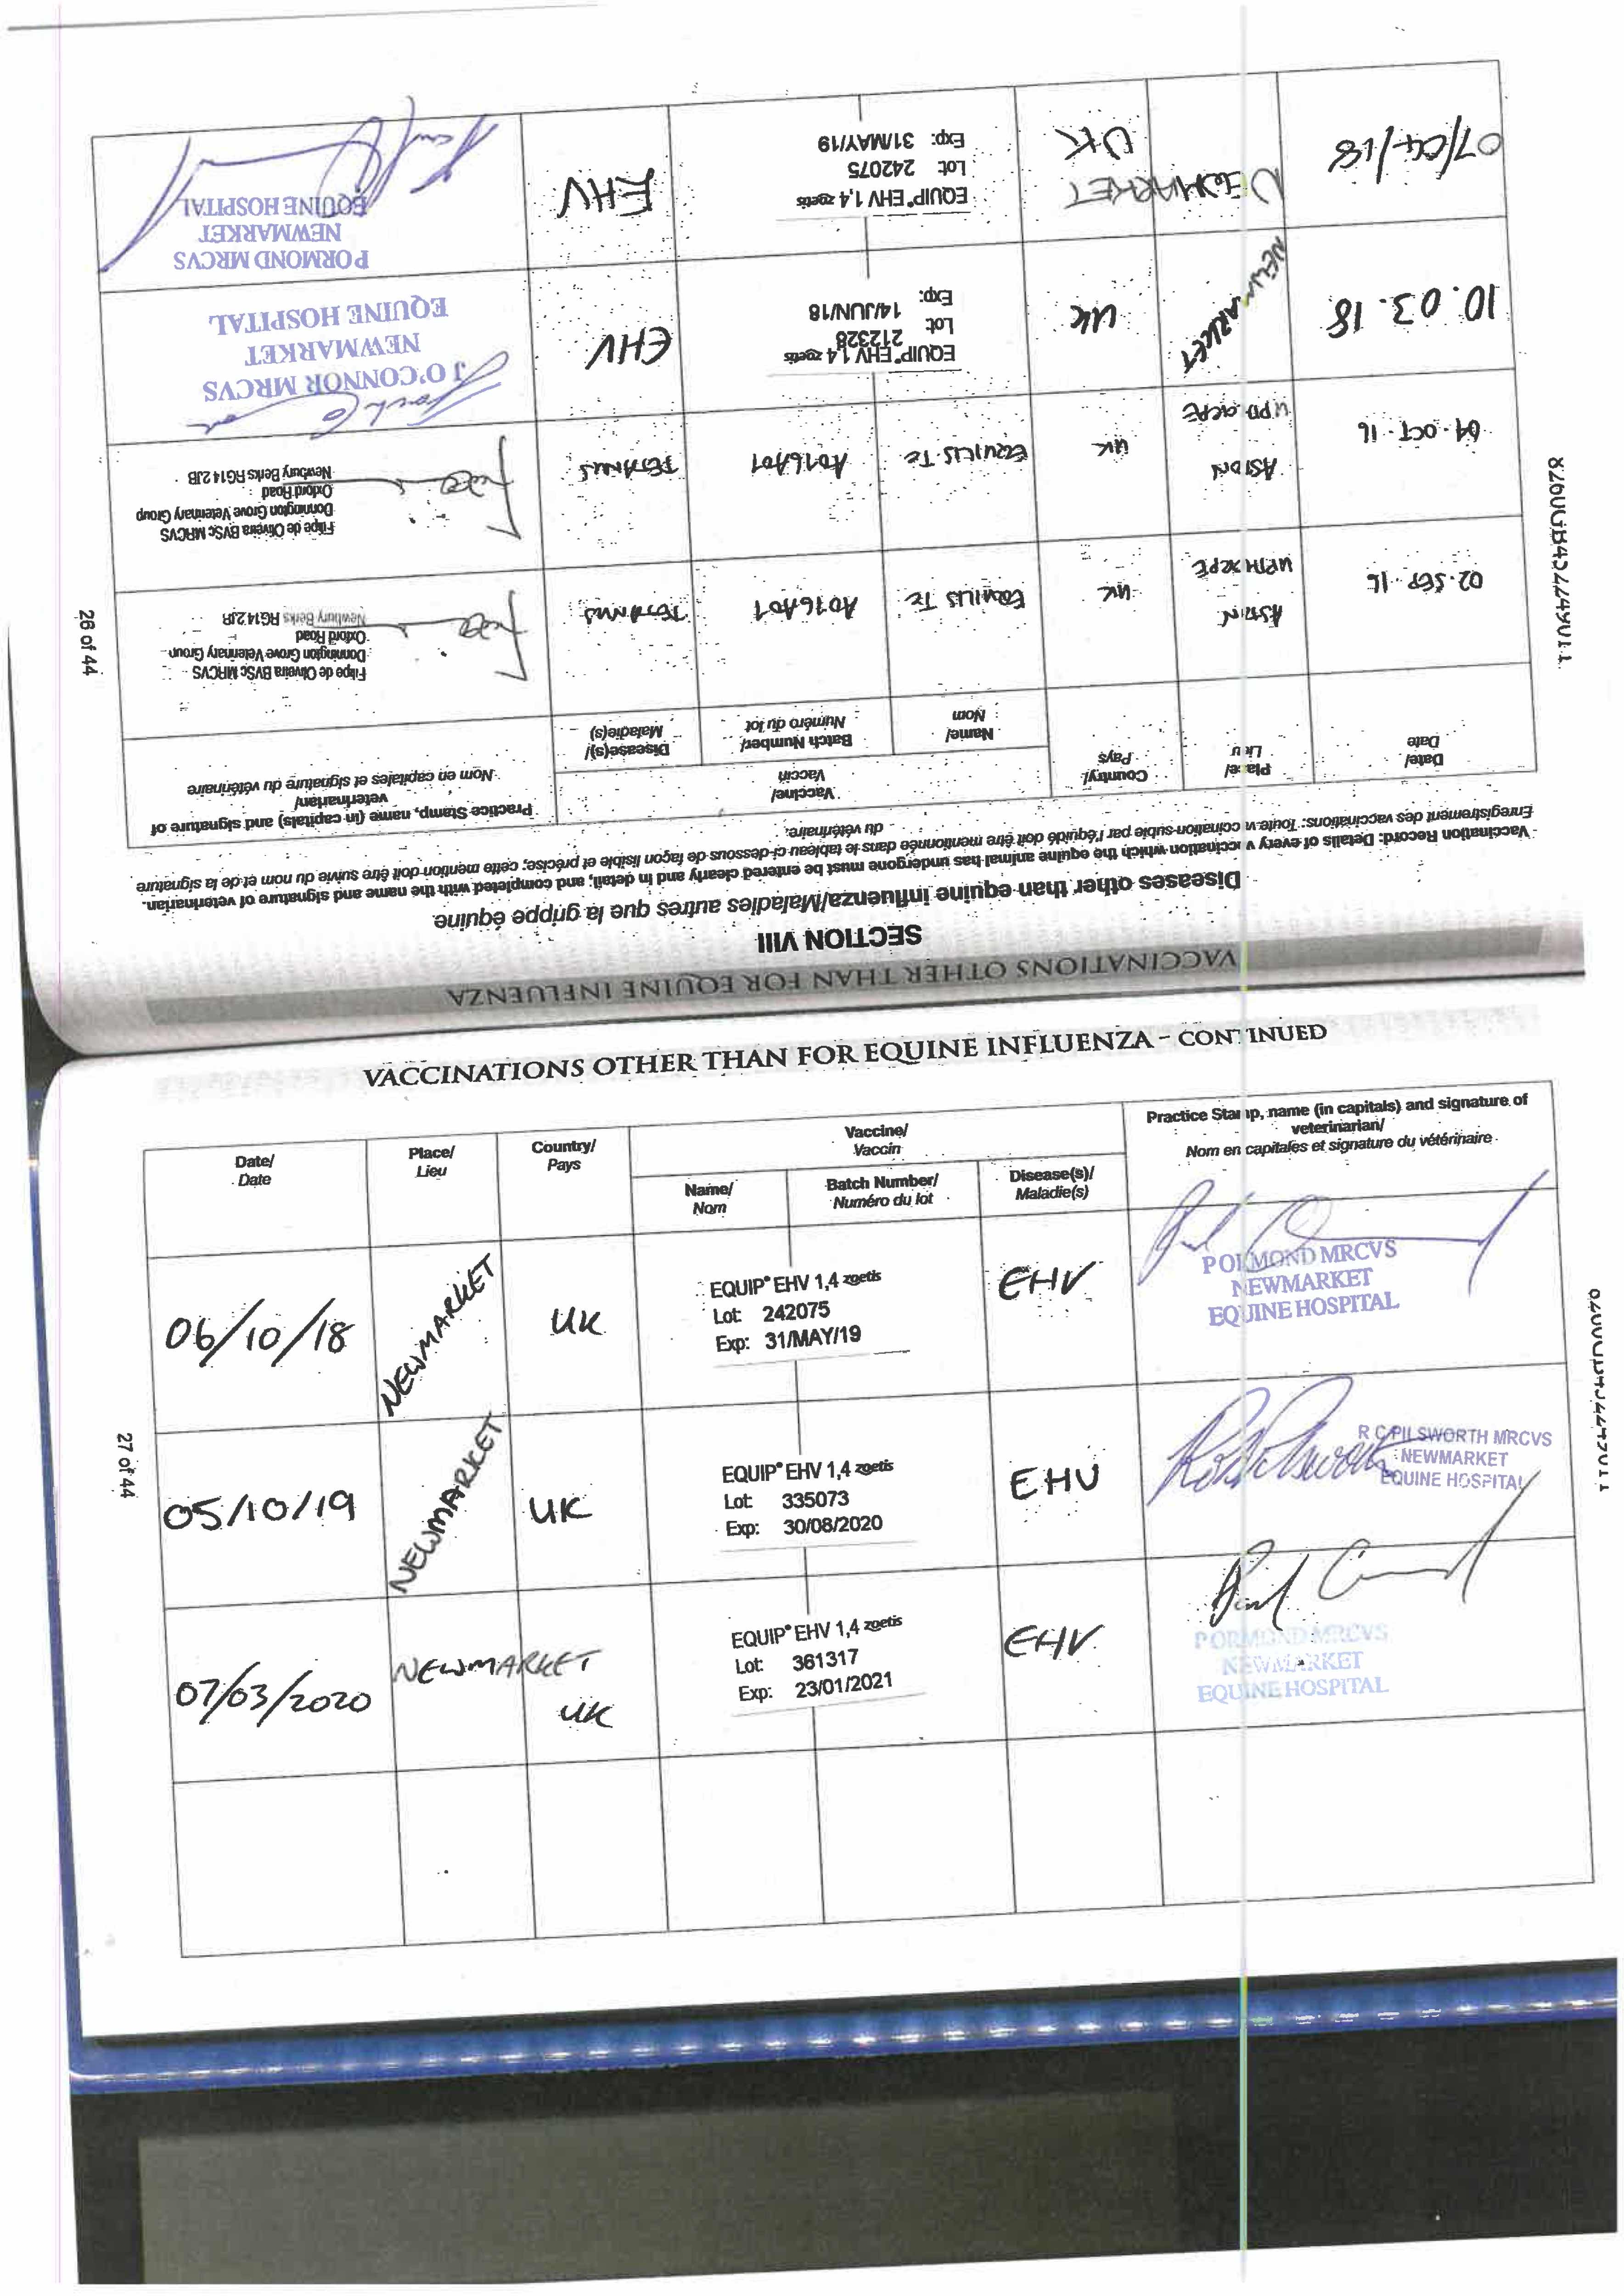 VACCINATIONS OTHER THAN FOR EQUINE INFLUENZA
SECTION VIII
Diseases other than equine influenza/Maladies autres que la grippe équine
Vaccination Record: Details of every vaccination which the equine animal has undergone must be entered clearly and in detail, and completed with the name and signature of veterinarian.
Enregistrement des vaccinations: Toute vaccination subie par l'équidé doit être mentionnée dans le tableau ci-dessous de façon lisible et précise; cette mention doit être suivie du nom et de la signature
du vétérinaire.
Date/
Date
Place/
Lieu
Country/
Pays
Vaccine/
Vaccin
Name/
Nom
Batch Number/
Numéro du lot
Disease(s)/
Maladie(s)
Practice Stamp, name (in capitals) and signature of
veterinarian/
Nom en capitales et signature du vétérinaire
02. SEP. 16
ASTON
UK
EQUILIS TE
A016A01
TETANUS
Filipe de Oliveira BVSc MRCVS
Donnington Grove Veterinary Group
Oxford Road
Newbury Berks RG14 2JB
04. OCT. 16
ASTON
UK
EQUILIS TE
A016A01
TETANUS
Filipe de Oliveira BVSc MRCVS
Donnington Grove Veterinary Group
Oxford Road
Newbury Berks RG14 2JB
10. 03. 18
NEWMARKET
UK
EQUIP® EHV 1,4 zoetis
Lot: 212328
Exp: 14/JUN/18
EHV
J O'CONNOR MRCVS
NEWMARKET
EQUINE HOSPITAL
07/04/18
NEWMARKET
UK
EQUIP® EHV 1,4 zoetis
Lot: 242075
Exp: 31/MAY/19
EHV
P ORMOND MRCVS
NEWMARKET
EQUINE HOSPITAL
26 of 44
VACCINATIONS OTHER THAN FOR EQUINE INFLUENZA – CONTINUED
Date/
Date
Place/
Lieu
Country/
Pays
Vaccine/
Vaccin
Name/
Nom
Batch Number/
Numéro du lot
Disease(s)/
Maladie(s)
Practice Stamp, name (in capitals) and signature of
veterinarian/
Nom en capitales et signature du vétérinaire
06/10/18
NEWMARKET
UK
EQUIP® EHV 1,4 zoetis
Lot: 242075
Exp: 31/MAY/19
EHV
P ORMOND MRCVS
NEWMARKET
EQUINE HOSPITAL
05/10/19
NEWMARKET
UK
EQUIP® EHV 1,4 zoetis
Lot: 335073
Exp: 30/08/2020
EHV
R C PILSWORTH MRCVS
NEWMARKET
EQUINE HOSPITAL
07/03/2020
NEWMARKET
UK
EQUIP® EHV 1,4 zoetis
Lot: 361317
Exp: 23/01/2021
EHV
P ORMOND MRCVS
NEWMARKET
EQUINE HOSPITAL
27 of 44